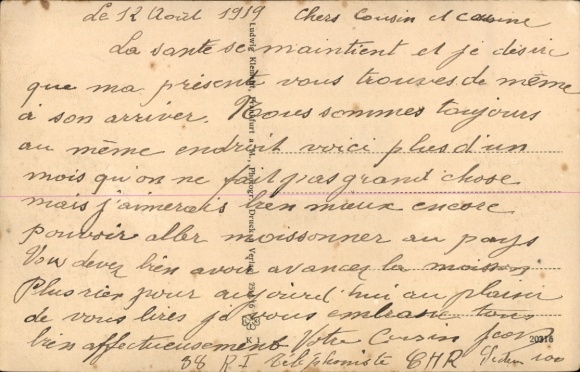 Le 12 Août 1919 Chers Cousin et Cousine
La santé se maintient et je désire
que ma présente vous trouves de même
à son arriver. Nous sommes toujours
au même endroit voici plus d'un
mois qu'on ne fait pas grand chose
mais j'aimerais bien mieux encore
pouvoir aller moissonner au pays
Vou devez bien avoir avancer la moisson
Plus rien pour aujourd'hui au plaisir
de vous lires je vous embrasse tous
bien affectueusement Votre Cousin
38 R I Téléphoniste CHR
Ludwig Klement, Frankfurt a. M., Photogr. Druck
20316